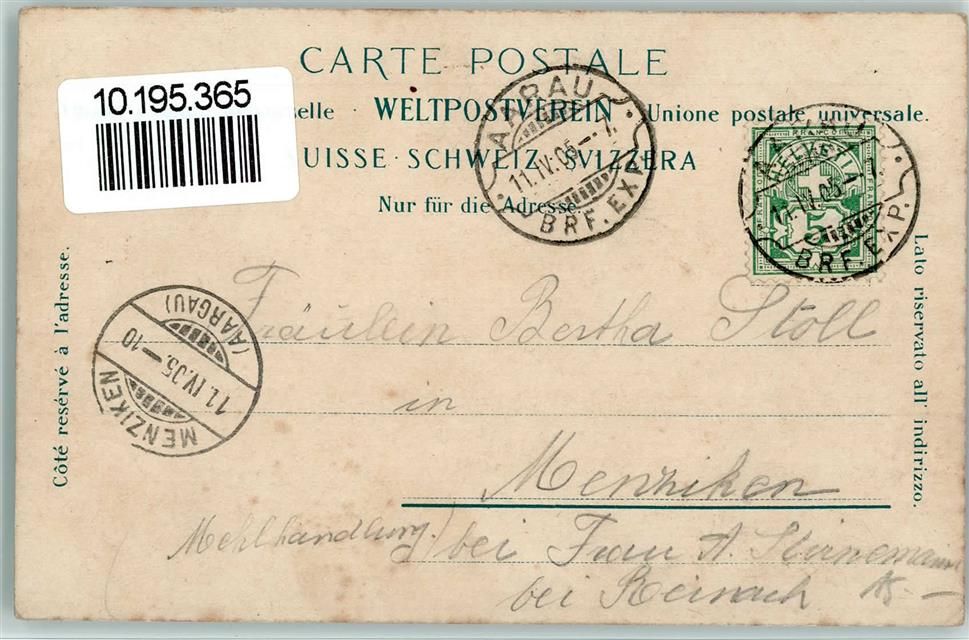 CARTE POSTALE
10.195.365
selle · WELTPOSTVEREIN · Unione postale universale.
UISSE · SCHWEIZ · SVIZZERA
Nur für die Adresse
AARAU
11.IV.05.-7.
BRF. EXP.
FRANCO
HELVETIA
5
11.IV.05-7.
BRF. EXP.
Côté reservé à l'adresse.
Lato riservato all' indirizzo.
(AARGAU)
11.IV.05.-10
MENZIKEN
Fräulein Bertha Stoll
in
Menziken
Mehlhandlung) bei Frau A.
bei Reinach